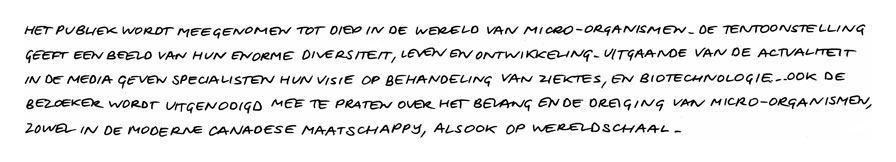 HET PUBLIEK WORDT MEEGENOMEN TOT DIEP IN DE WERELD VAN MICRO-ORGANISMEN. DE TENTOONSTELLING
GEEFT EEN BEELD VAN HUN ENORME DIVERSITEIT, LEVEN EN ONTWIKKELING. UITGAANDE VAN DE ACTUALITEIT
IN DE MEDIA GEVEN SPECIALISTEN HUN VISIE OP BEHANDELING VAN ZIEKTES, EN BIOTECHNOLOGIE... OOK DE
BEZOEKER WORDT UITGENODIGD MEE TE PRATEN OVER HET BELANG EN DE DREIGING VAN MICRO-ORGANISMEN,
ZOWEL IN DE MODERNE CANADESE MAATSCHAPPY, ALSOOK OP WERELDSCHAAL.